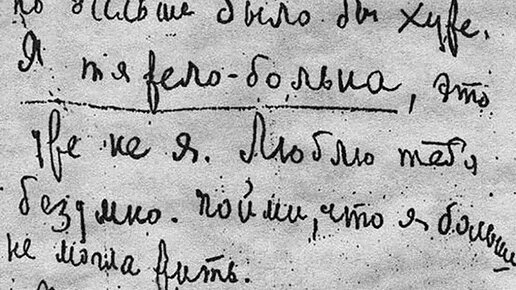 но дальше было бы хуже.
Я тяжело-больна, это
уже не я. Люблю тебя
безумно. Пойми, что я больше
не могла жить.